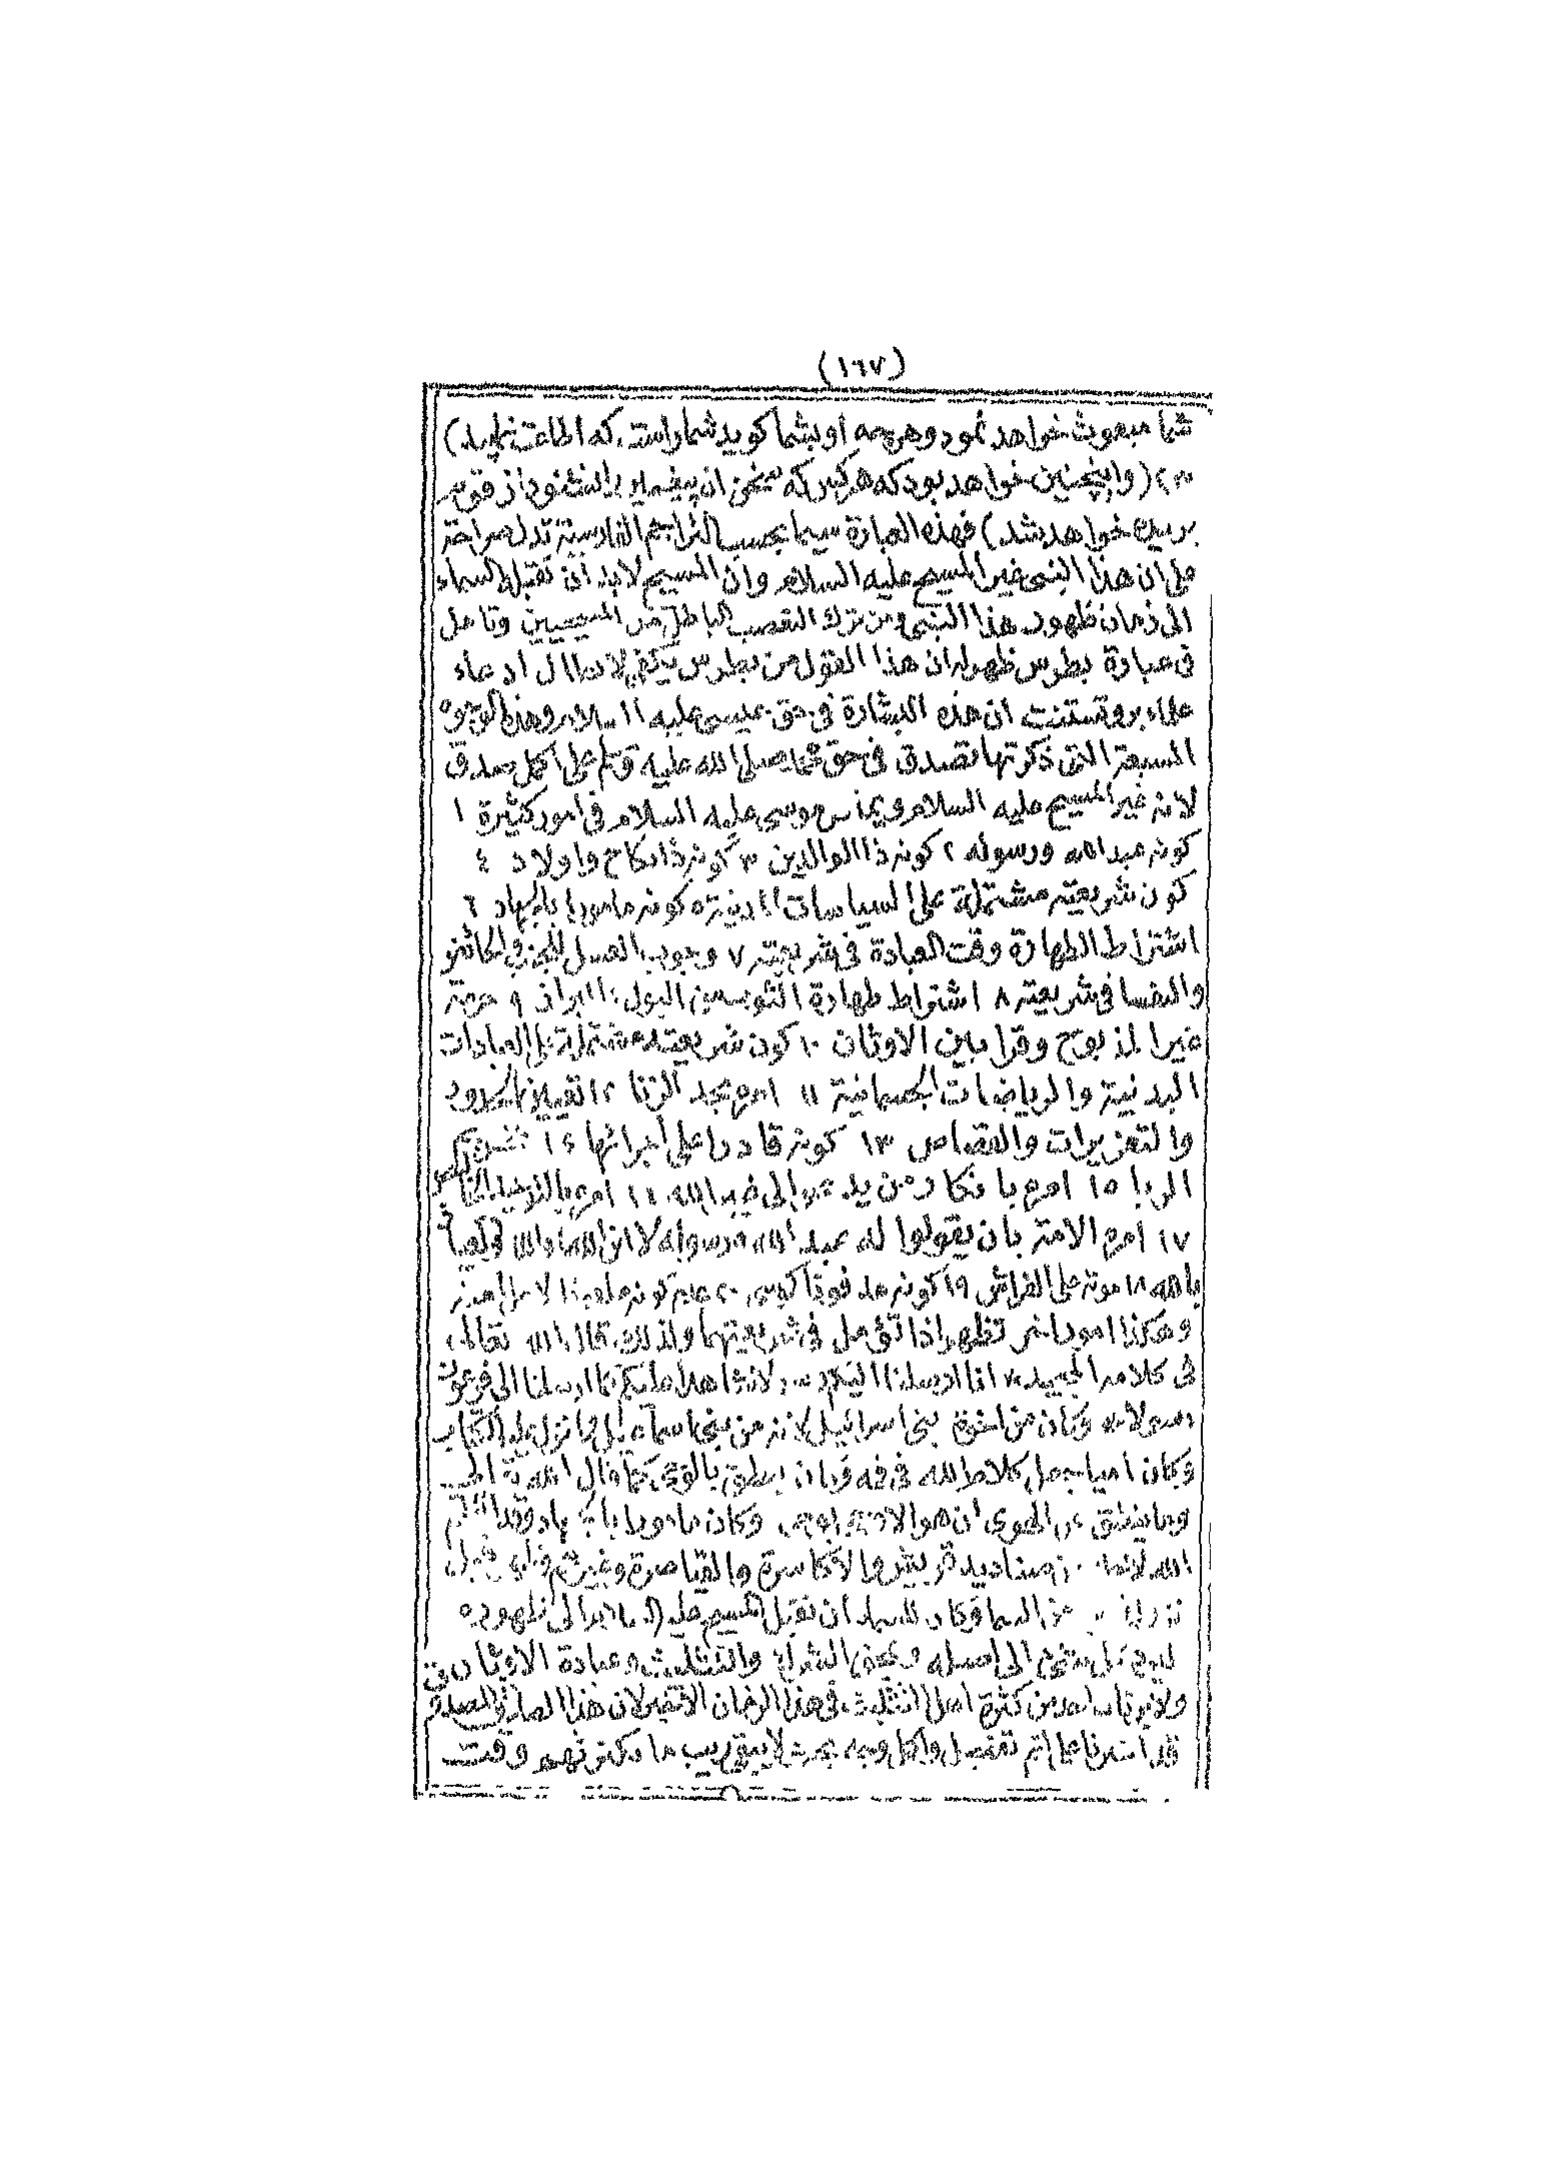 (١٦٧)
شما مبعوث خواهد نمود وهرچه او بشما كويد شمار است كه اطاعت نمايد)
٢٣ (واينچنين خواهد بود كه هر كس كه سخن ان پيغمبر را نشنود از قوم
بريده خواهد شد) فهذه العبارة سيما بحسب التراجم الفارسية تدل صراحة
على ان هذا النبى غير المسيح عليه السلام وان المسيح لابد ان تقبله السماء
الى زمان ظهور هذا النبى ومن ترك التعصب الباطل من المسيحيين وتامل
فى عبارة بطرس ظهر له ان هذا القول من بطرس يكفى لابطال ادعاء
علماء بروتستنت ان هذه البشارة فى حق عيسى عليه السلام وهذه الوجوه
السبعة التى ذكرتها تصدق فى حق محمد صلى الله عليه وسلم على اكمل صدق
لانه غير المسيح عليه السلام ويماثل موسى عليه السلام فى امور كثيرة ١
كونه عبد الله ورسوله ٢ كونه ذا الوالدين ٣ كونه ذا نكاح واولاد ٤
كون شريعته مشتملة على السياسات المدنية ٥ كونه مامورا بالجهاد ٦
اشتراط الطهارة وقت العبادة فى شريعته ٧ وجوب الغسل للجنب والحائض
والنفسا فى شريعته ٨ اشتراط طهارة الثوب من البول والبراز ٩ حرمة
غير المذبوح وقرابين الاوثان ١٠ كون شريعته مشتملة على العبادات
البدنية والرياضات الجسمانية ١١ امره بحد الزنا ١٢ تعيين الحدود
والتعزيرات والقصاص ١٣ كونه قادرا على اجرائها ١٤ تحريم
الربا ١٥ امره بانكار من يدعو الى غير الله ١٦ امره بالتوحيد الخالص
١٧ امره الامة بان يقولوا له عبد الله ورسوله لا ابن الله او الله والعياذ
بالله ١٨ موته على الفراش ١٩ كونه مدفونا كموسى ٢٠ عدم كونه ملعونا لاجل امته
وهكذا امور اخر تظهر اذا تؤمل فى شريعتهما ولذلك قال الله تعالى
فى كلامه المجيد انا ارسلنا اليكم رسولا شاهدا عليكم كما ارسلنا الى فرعون
رسولا وكان من اخوة بنى اسرائيل لانه من بنى اسماعيل وانزل عليه الكتاب
وكان اميا جعل كلام الله فى فمه وكان ينطق بالوحى كما قال الله تعالى
وما ينطق عن الهوى ان هو الا وحى يوحى وكان مامورا بالجهاد وقد انتقم
الله لاجله من صناديد قريش والاكاسرة والقياصرة وغيرهم وظهر قبل
نزول المسيح من السما وكان للسما ان تقبل المسيح عليه السلام الى ظهوره
ليرد كل شئ الى اصله ويمحق الشرك والتثليث وعبادة الاوثان
ولا يرتاب احد من كثرة اهل التثليث فى هذا الزمان الاخير لان هذا الصادق المصدوق
قد اخبرنا على اتم تفصيل واكمل وجه بحيث لا يبقى ريب ما بكثرتهم وقت